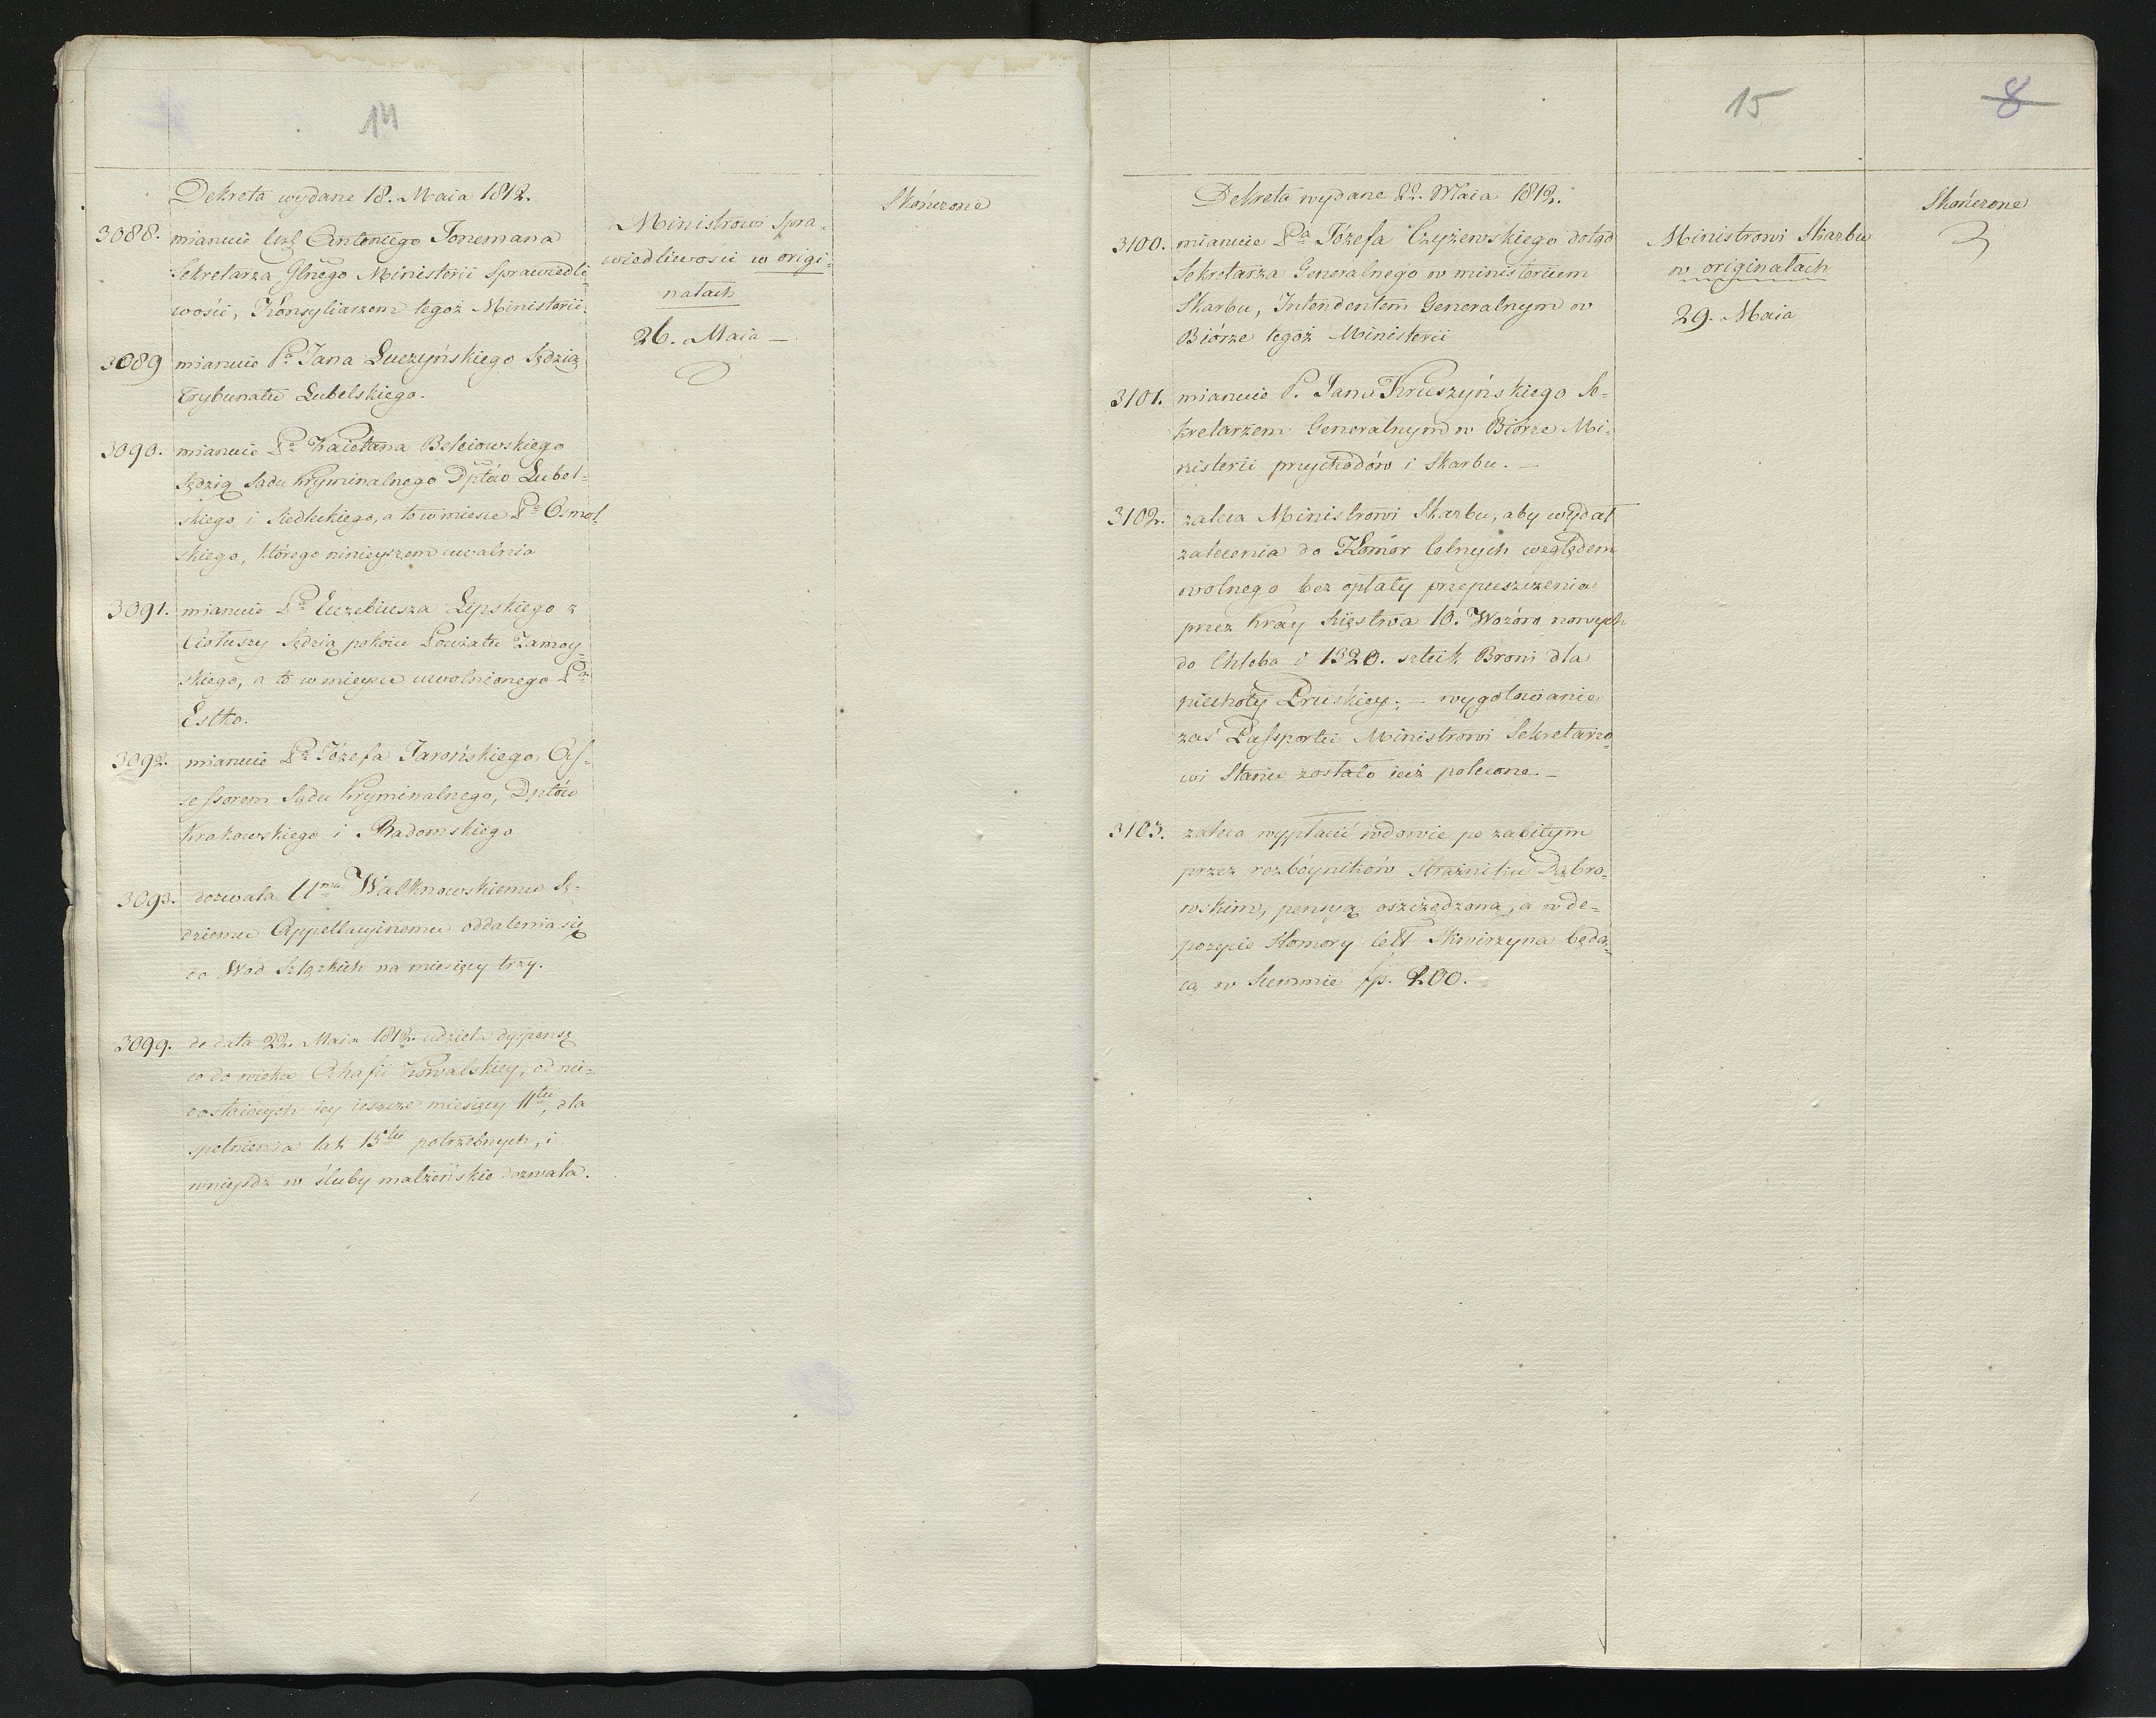 14
Dekreta wydane 18. Maia 1812.
3088. mianuie Ur. Antoniego Jonemana
Sekretarza Glnego Ministerii Sprawiedli-
wości, Konsyliarzem tegoż Ministerii.
3089 mianuie Pa Jana Łuczyńskiego Sędzią
Trybunału Lubelskiego.
3090. mianuie Pa Kaietana Bełciowskiego
Sędzią Sądu Kryminalnego Dptów Lubel-
skiego i Siedleckiego, a to w miesce Pa Osmol
skiego, którego ninieyszem uwalnia
3091. mianuie Pa Euzebiusza Lipskiego z
Sędzią pokoiu Powiatu Zamoy-
skiego, a to w mieysce uwolnionego Pa
Estko.
3092. mianuie Pa Józefa Jarońskiego As-
sessorem Sądu Kryminalnego, Dptów
Krakowskiego i Radomskiego
3093. dozwala Walknowskiemu Sę-
dziemu Appellacyinemu oddalenia się
do Wód Szląskich na miesięcy trzy.
3099. de data 22. Maia 1812. udziela dyspensę
co do wieku Ahafii Kowalskiey, od nie-
dostaiących iey ieszcze miesięcy 11tu, dla
spełnienia lat 15tu potrzebnych, i
wnieyśdź w śluby małżeńskie dozwala.
Ministrowi Spra-
wiedliwości w origi-
nałach
26. Maia —
Skończone
15
8
Dekreta wydane 22. Maia 1812.
3100. mianuie Pa Józefa Czyżewskiego dotąd
Sekretarza Generalnego w ministerium
Skarbu, Intendentem Generalnym w
Biórze tegoż Ministerii
3101. mianuie P. Jana Kruszyńskiego Se-
kretarzem Generalnym w Biórze Mi-
nisterii przychodów i Skarbu. —
3102. zaleca Ministrowi Skarbu, aby wydał
zalecenia do Komór Celnych względem
wolnego bez opłaty przepuszczenia
przez Kray Xięstwa 10. Wozów nowych
do Chleba i 1320. sztuk Broni dla
piechoty Pruskiey; — wygotowanie
zaś Passportu Ministrowi Sekretarzo-
wi Stanu zostało iuż polecone. —
3103. zaleca wypłacić wdowie po zabitym
przez rozbóyników Strażniku Dąbro-
wskim, pensyą oszczędzoną, a w de-
pozycie Komory Cell Skwirzyna będą-
cą w Summie fp. 200.
Ministrowi Skarbu
w originałach
29. Maia
Skończone